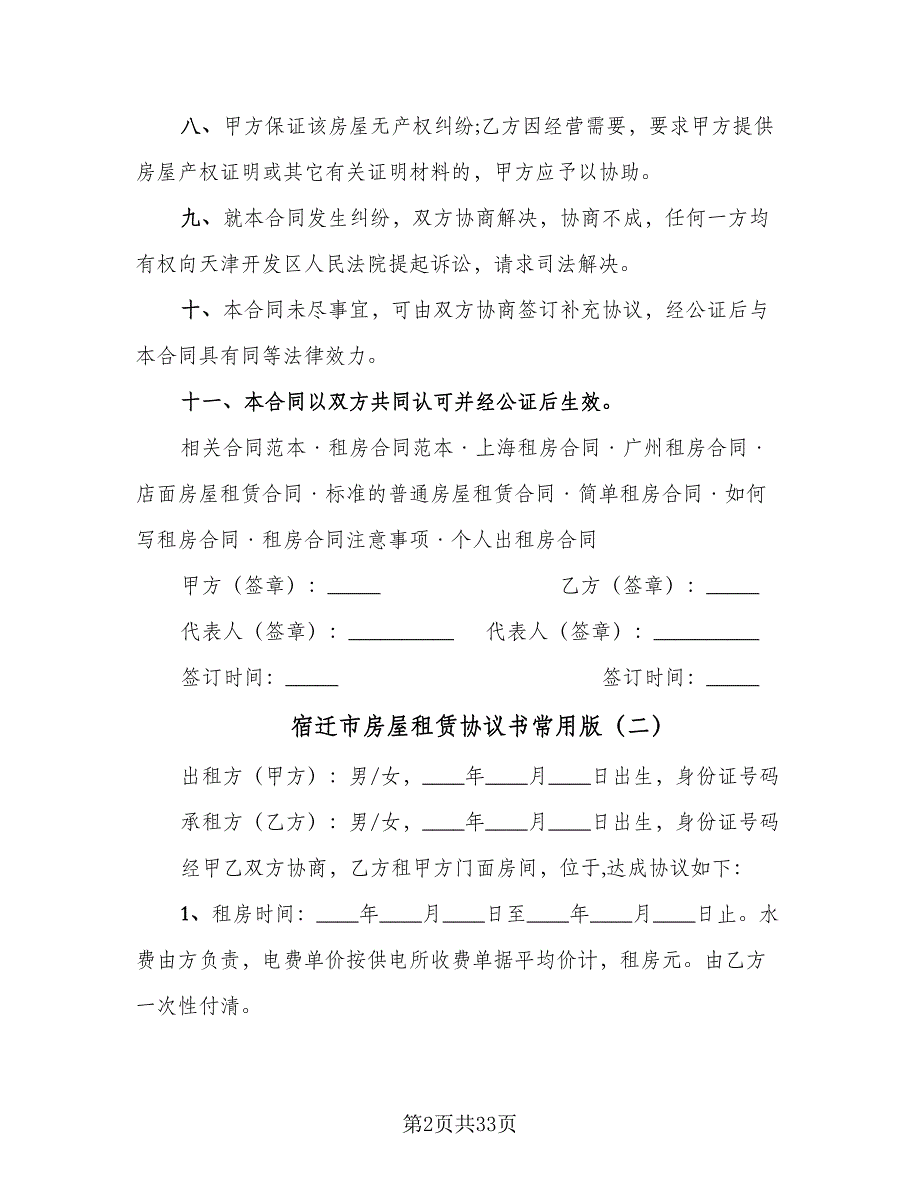 八、甲方保证该房屋无产权纠纷;乙方因经营需要，要求甲方提供
房屋产权证明或其它有关证明材料的，甲方应予以协助。
九、就本合同发生纠纷，双方协商解决，协商不成，任何一方均
有权向天津开发区人民法院提起诉讼，请求司法解决。
十、本合同未尽事宜，可由双方协商签订补充协议，经公证后与
本合同具有同等法律效力。
十一、本合同以双方共同认可并经公证后生效。
相关合同范本·租房合同范本·上海租房合同·广州租房合同·
店面房屋租赁合同·标准的普通房屋租赁合同·简单租房合同·如何
写租房合同·租房合同注意事项·个人出租房合同
甲方（签章）：_____ 乙方（签章）：_____
代表人（签章）：__________ 代表人（签章）：__________
签订时间：_____ 签订时间：_____
宿迁市房屋租赁协议书常用版（二）
出租方（甲方）：男/女，____年____月____日出生，身份证号码
承租方（乙方）：男/女，____年____月____日出生，身份证号码
经甲乙双方协商，乙方租甲方门面房间，位于,达成协议如下：
1、租房时间：____年____月____日至____年____月____日止。水
费由方负责，电费单价按供电所收费单据平均价计，租房元。由乙方
一次性付清。
第2页共33页